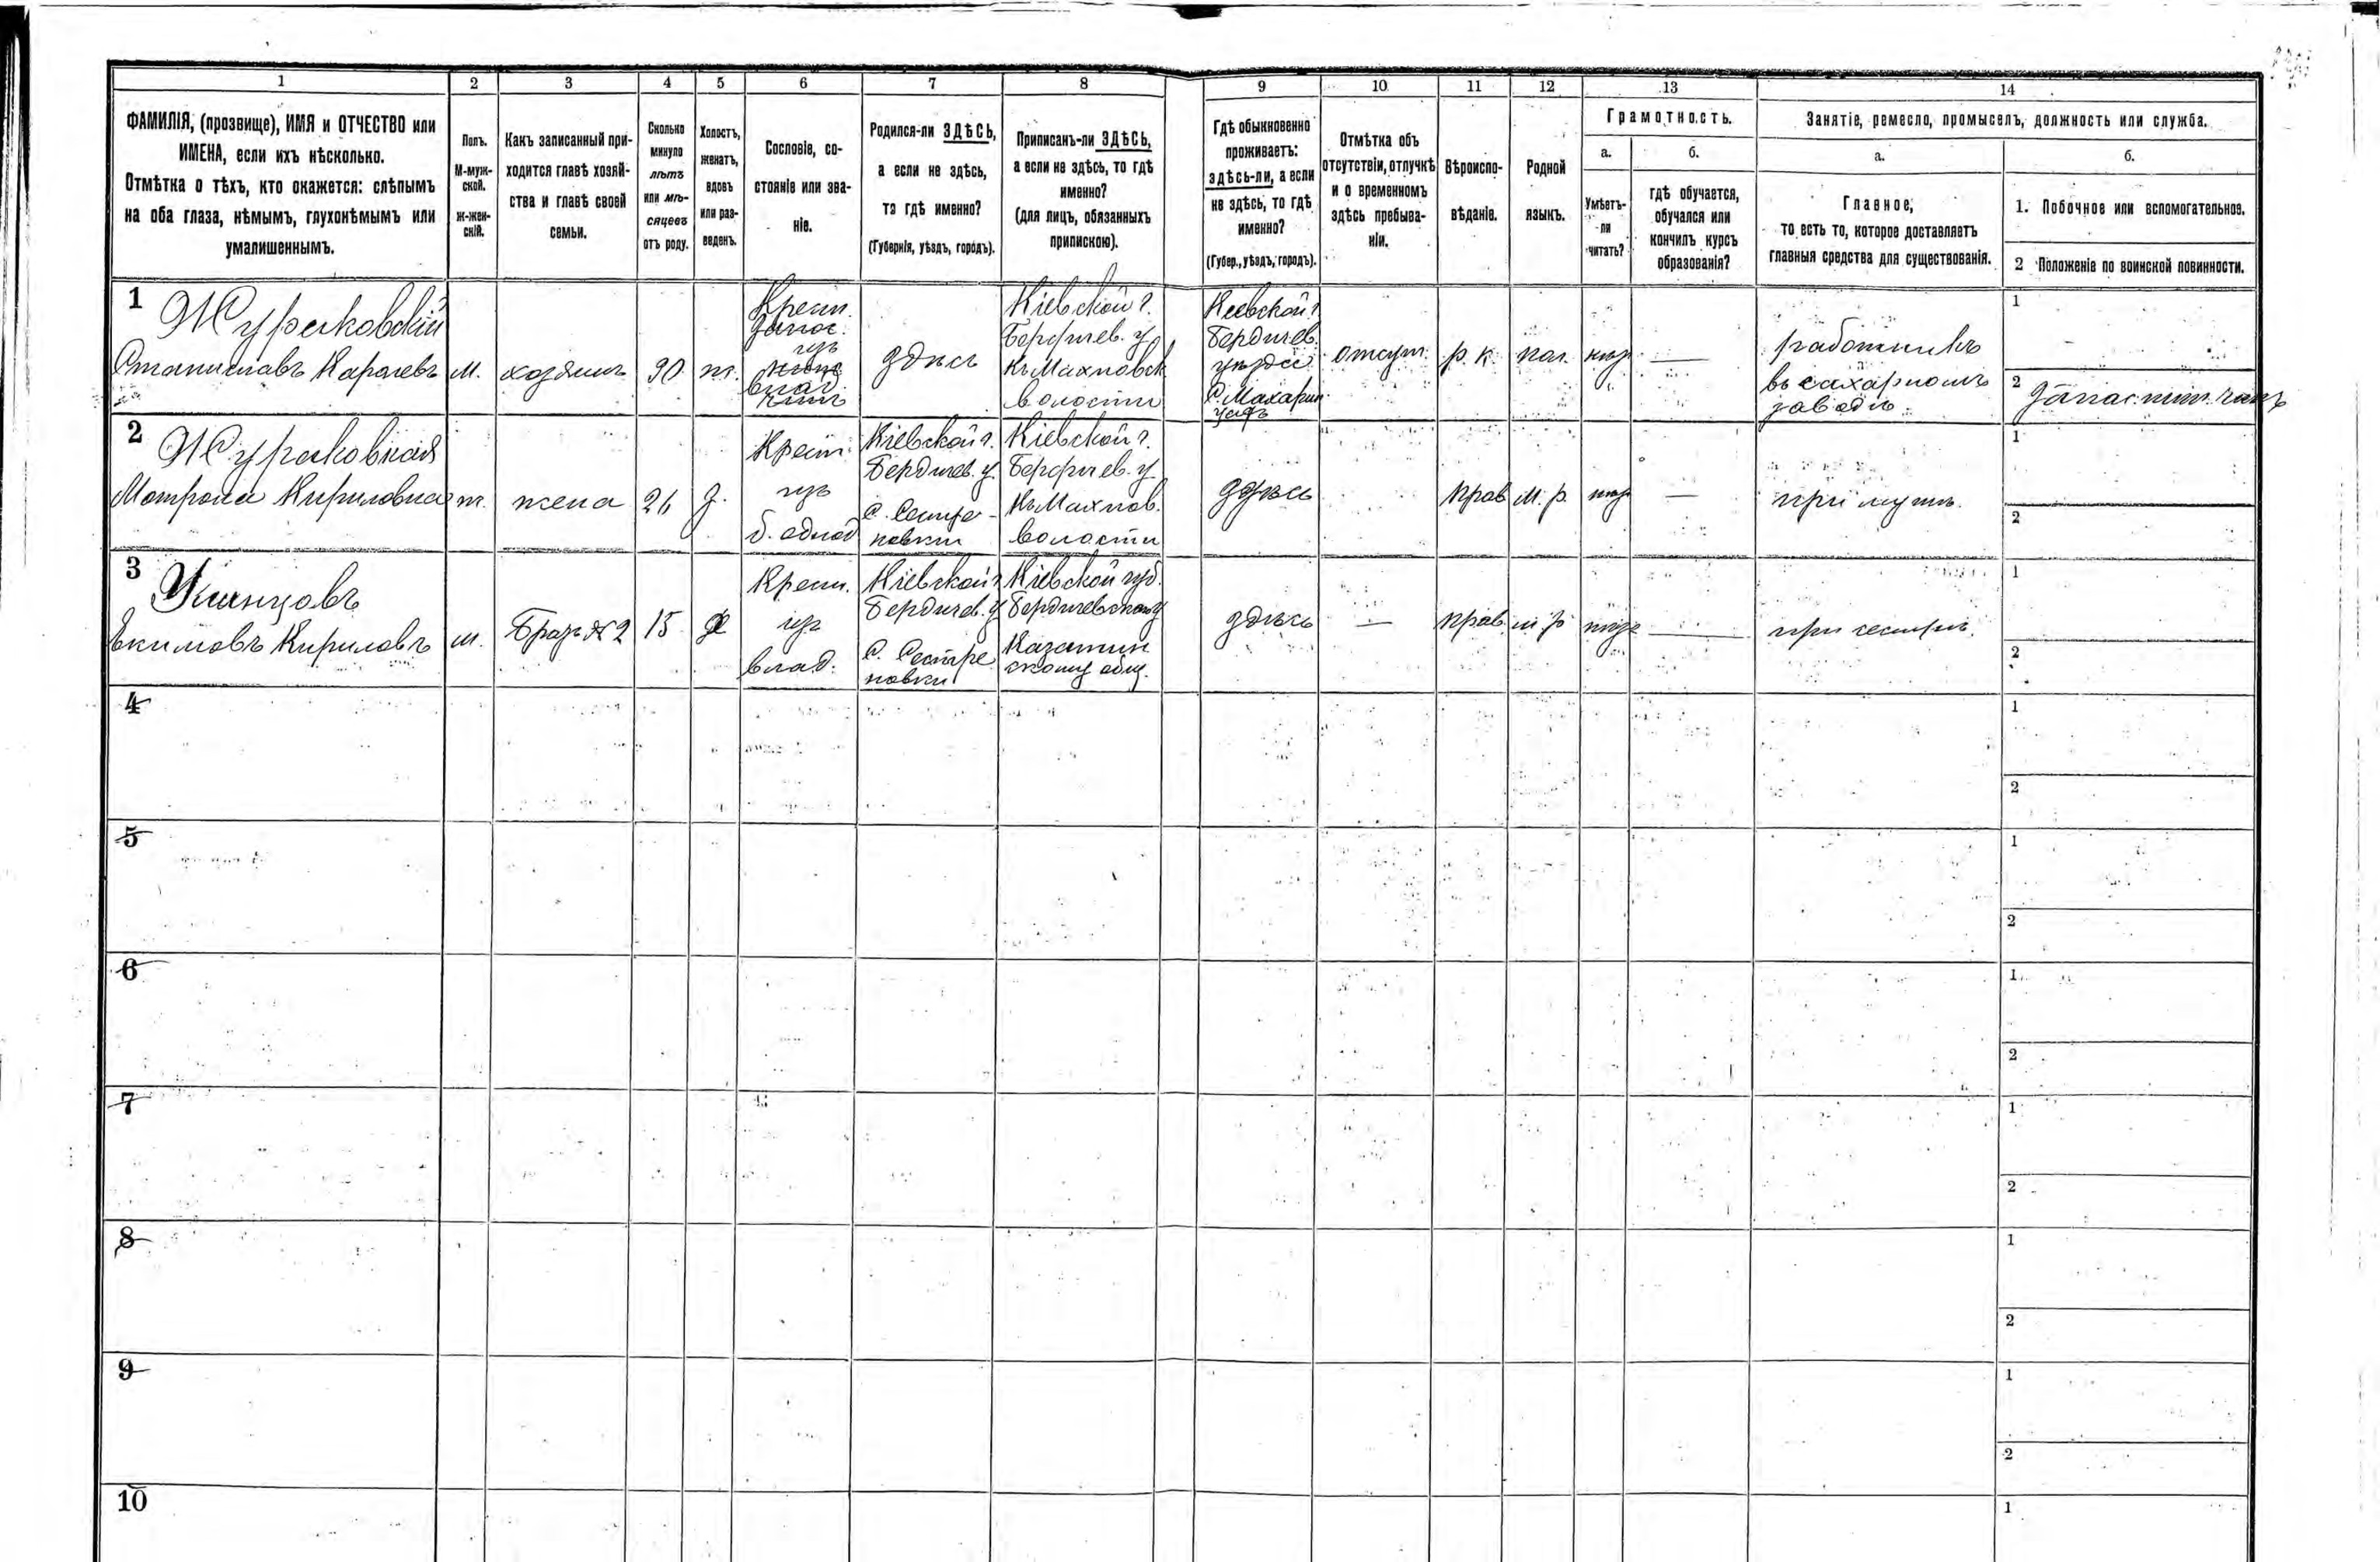 1 2 3 4 5 6 7 8 9 10 11 12 13 14
ФАМИЛІЯ, (прозвище), ИМЯ и ОТЧЕСТВО или
ИМЕНА, если ихъ нѣсколько.
Отмѣтка о тѣхъ, кто окажется: слѣпымъ
на оба глаза, нѣмымъ, глухонѣмымъ или
умалишеннымъ.
Полъ.
М-муж-
ской.
ж-жен-
скій.
Какъ записанный при-
ходится главѣ хозяй-
ства и главѣ своей
семьи.
Сколько
минуло
лѣтъ
или мѣ-
сяцевъ
отъ роду.
Холостъ,
женатъ,
вдовъ
или раз-
веденъ.
Сословіе, со-
стояніе или зва-
ніе.
Родился-ли ЗДѢСЬ,
а если не здѣсь,
то гдѣ именно?
(Губернія, уѣздъ, городъ).
Приписанъ-ли ЗДѢСЬ,
а если не здѣсь, то гдѣ
именно?
(для лицъ, обязанныхъ
припискою).
Гдѣ обыкновенно
проживаетъ:
здѣсь-ли, а если
не здѣсь, то гдѣ
именно?
(Губер., уѣздъ, городъ).
Отмѣтка объ
отсутствіи, отлучкѣ
и о временномъ
здѣсь пребыва-
ніи.
Вѣроиспо-
вѣданіе.
Родной
языкъ.
Грамотность.
а.
Умѣетъ-
ли
читать?
б.
гдѣ обучается,
обучался или
кончилъ курсъ
образованія?
Занятіе, ремесло, промыселъ, должность или служба.
а.
Главное,
то есть то, которое доставляетъ
главныя средства для существованія.
б.
1. Побочное или вспомогательное.
2 Положеніе по воинской повинности.
1
Станиславъ
м.
хозяинъ
ж.
Крест.
изъ
здѣсь
Кіевской г.
Бердичев. у.
Къ Махновск
волости
Кіевской г.
Бердичев.
уѣзда
отсут.
р. к.
пол.
работникъ
въ сахарномъ
заводѣ
1
2
2
Мотрона Кириловна
ж.
жена
26
з.
Крест.
изъ
Кіевской г.
Бердичев. у.
Кіевской г.
Бердичев. у.
Къ Махнов.
волости
здѣсь
прав
м. р.
—
при мужѣ.
1
2
3
Екимовъ Кириловъ
м.
Братъ № 2
15
х
Крест.
изъ
влад.
Кіевской г.
Бердичев. у.
С. Сестре
новки
Кіевской губ.
Бердичевскому
Казатин
скому общ.
здѣсь
—
прав.
м р
—
при сестрѣ.
1
2
4
1
2
5
1
2
6
1
2
7
1
2
8
1
2
9
1
2
10
1